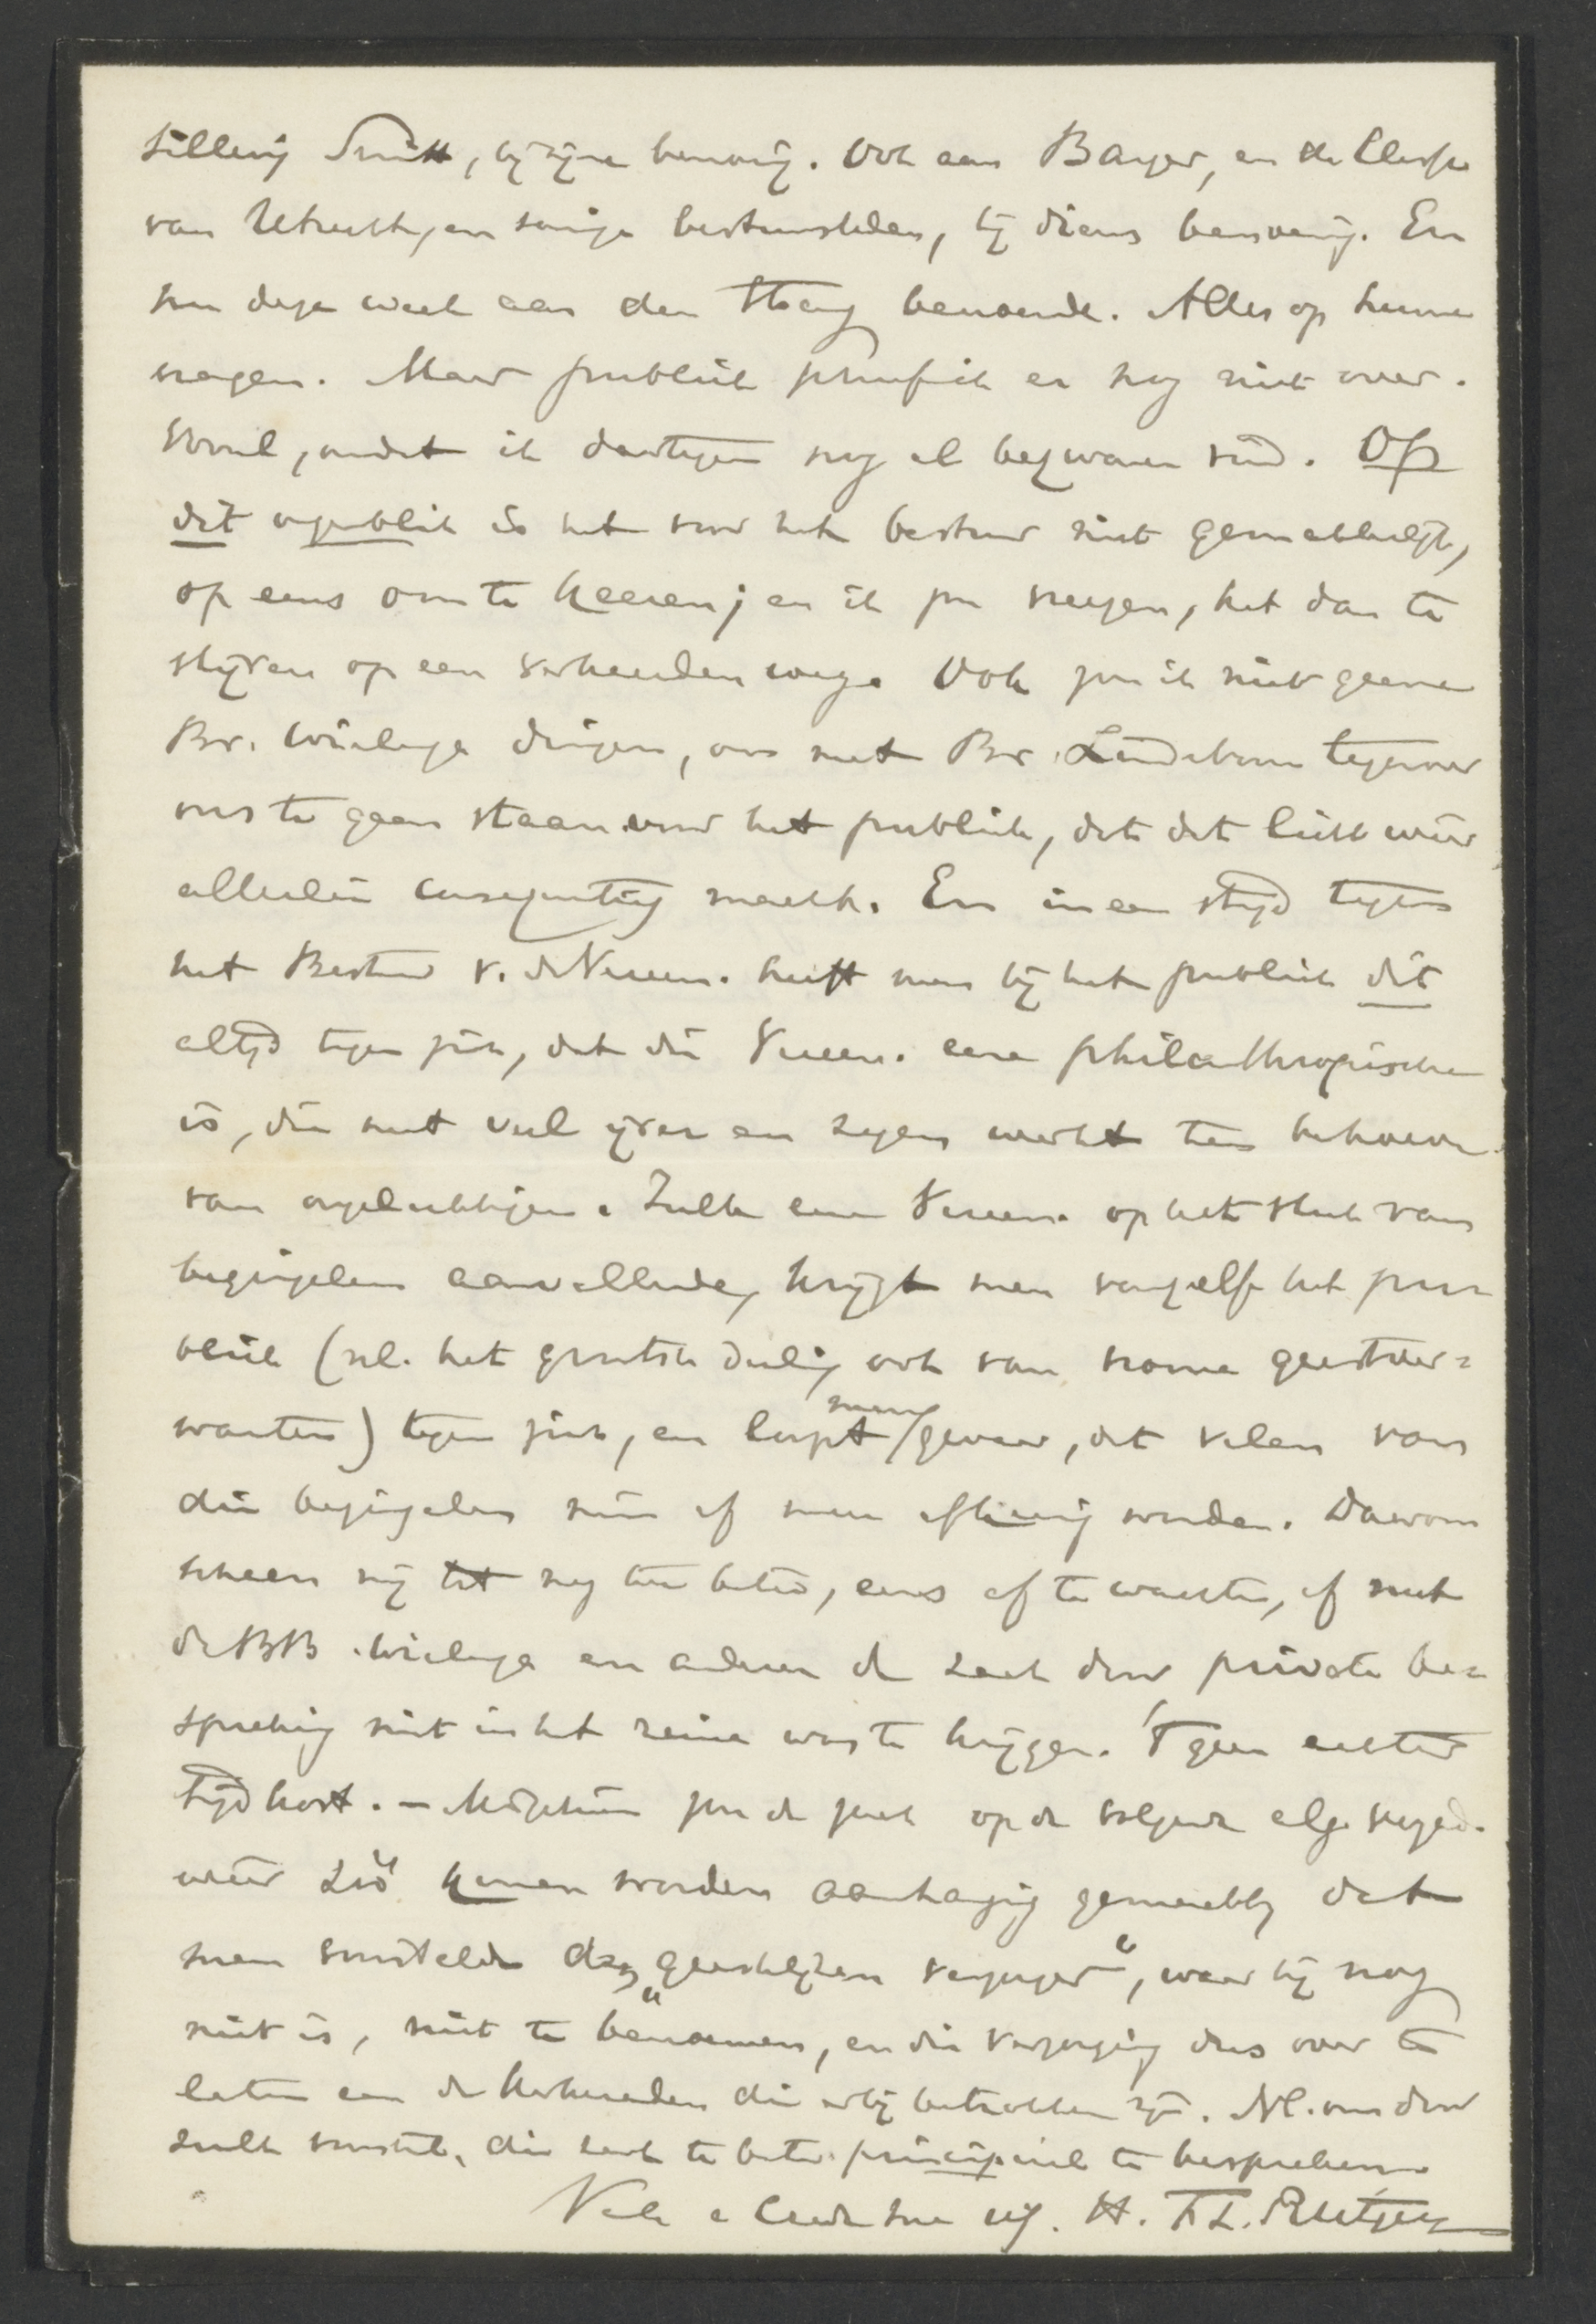 Smitt, bij zijne benoemg. Ook aan Bayer, en de Classe
van Utrecht, en eenige bestuursleden, bij diens benoeming. En
nu deze week aan den Haag benoemde. Alles op hunne
vragen. Maar publiek schreef ik er nog niet over.
Vooral, omdat ik daartegen nog al bezwaren vind. Op
dit oogenblik is het voor het bestuur niet gemakkelijk,
op eens om te keeren; en ik zou vreezen, het dan te
stijven op een verkeerden weg. Ook zou ik niet gaarne
Br. Wielenga dringen, om met Br. Lindeboom tegenover
ons te gaan staan voor het publiek, dat dat licht weer
allerlei consequentiën maakt. En in een strijd tegen
het Bestuur v. de Vereen. heeft men bij het publiek dit
altijd tegen zich, dat die Vereen. eene philanthropische
is, die met veel ijver en zegen werkt ten behoeve
van ongelukkigen. Zulk eene Vereen. op het stuk van
beginselen aanvallende, krijgt men vanzelf het pu-
bliek (nl. het grootste deel, ook van vrome geestver-
wanten) tegen zich, en loopt men gevaar, dat velen van
die beginselen min of meer afkeerig worden. Daarom
scheen mij tot nog toe beter, eens af te wachten, of met
de BB. Wielenga en anderen de zaak door private be-
spreking niet in het reine was te krijgen. 'tgeen echter
tijd kost. – Misschien zou de zaak op de volgende alg. vergad.
weer zóó kunnen worden aanhangig gemaakt, dat
men voorstelde den „geestelijken verzorger", waar hij nog
niet is, niet te benoemen, en die verzorging dus over te
laten aan de Kerkeraden die erbij betrokken zijn. Nl. om door
zulk voorstel, die zaak te beter principieel te bespreken.
F. L. Rutgers